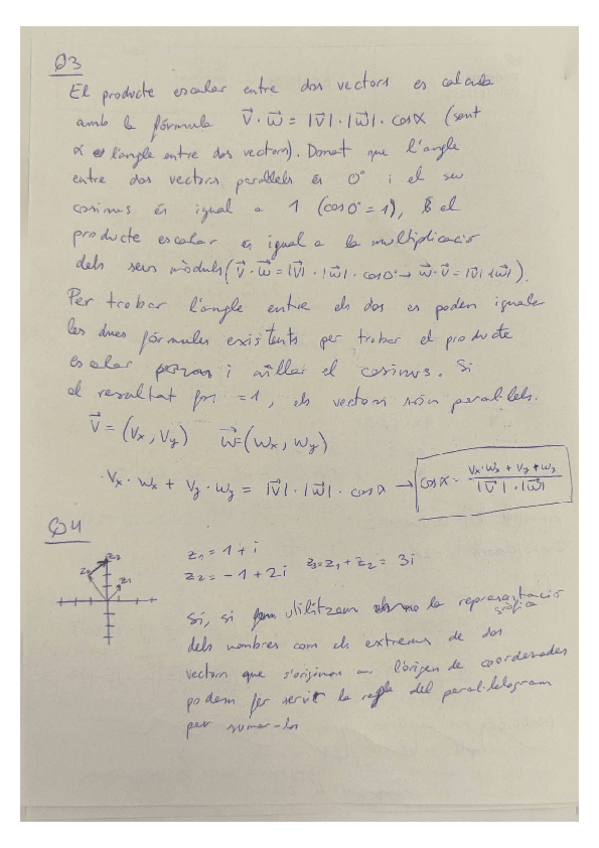 Q3
El producte escalar entre dos vectors es calcula
amb la fórmula V⃗ · W⃗ = |V⃗| · |W⃗| · cosα (sent
α l'angle entre dos vectors). Donat que l'angle
entre dos vectors paral·lels és 0° i el seu
cosinus és igual a 1 (cos0°=1), el
producte escalar és igual a la multiplicació
dels seus mòduls (V⃗ · W⃗ = |V⃗| · |W⃗| · cos0° → W⃗ · V⃗ = |V⃗| · |W⃗|).
Per trobar l'angle entre els dos es poden igualar
les dues fórmules existents per trobar el producte
escalar i aïllar el cosinus. Si
el resultat fos =1, els vectors són paral·lels.
V⃗ = (Vx, Vy) W⃗ = (Wx, Wy)
Vx · Wx + Vy · Wy = |V⃗| · |W⃗| · cosα → cosα = (Vx·Wx + Vy+Wy) / (|V⃗| · |W⃗|)
Q4
z3
z2
z1
z1 = 1 + i
z2 = -1 + 2i z3 = z1 + z2 = 3i
Sí, si utilitzem la representació
gràfica
dels nombres com els extrems de dos
vectors que s'originen en l'origen de coordenades
podem fer servir la regla del paral·lelogram
per sumar-los